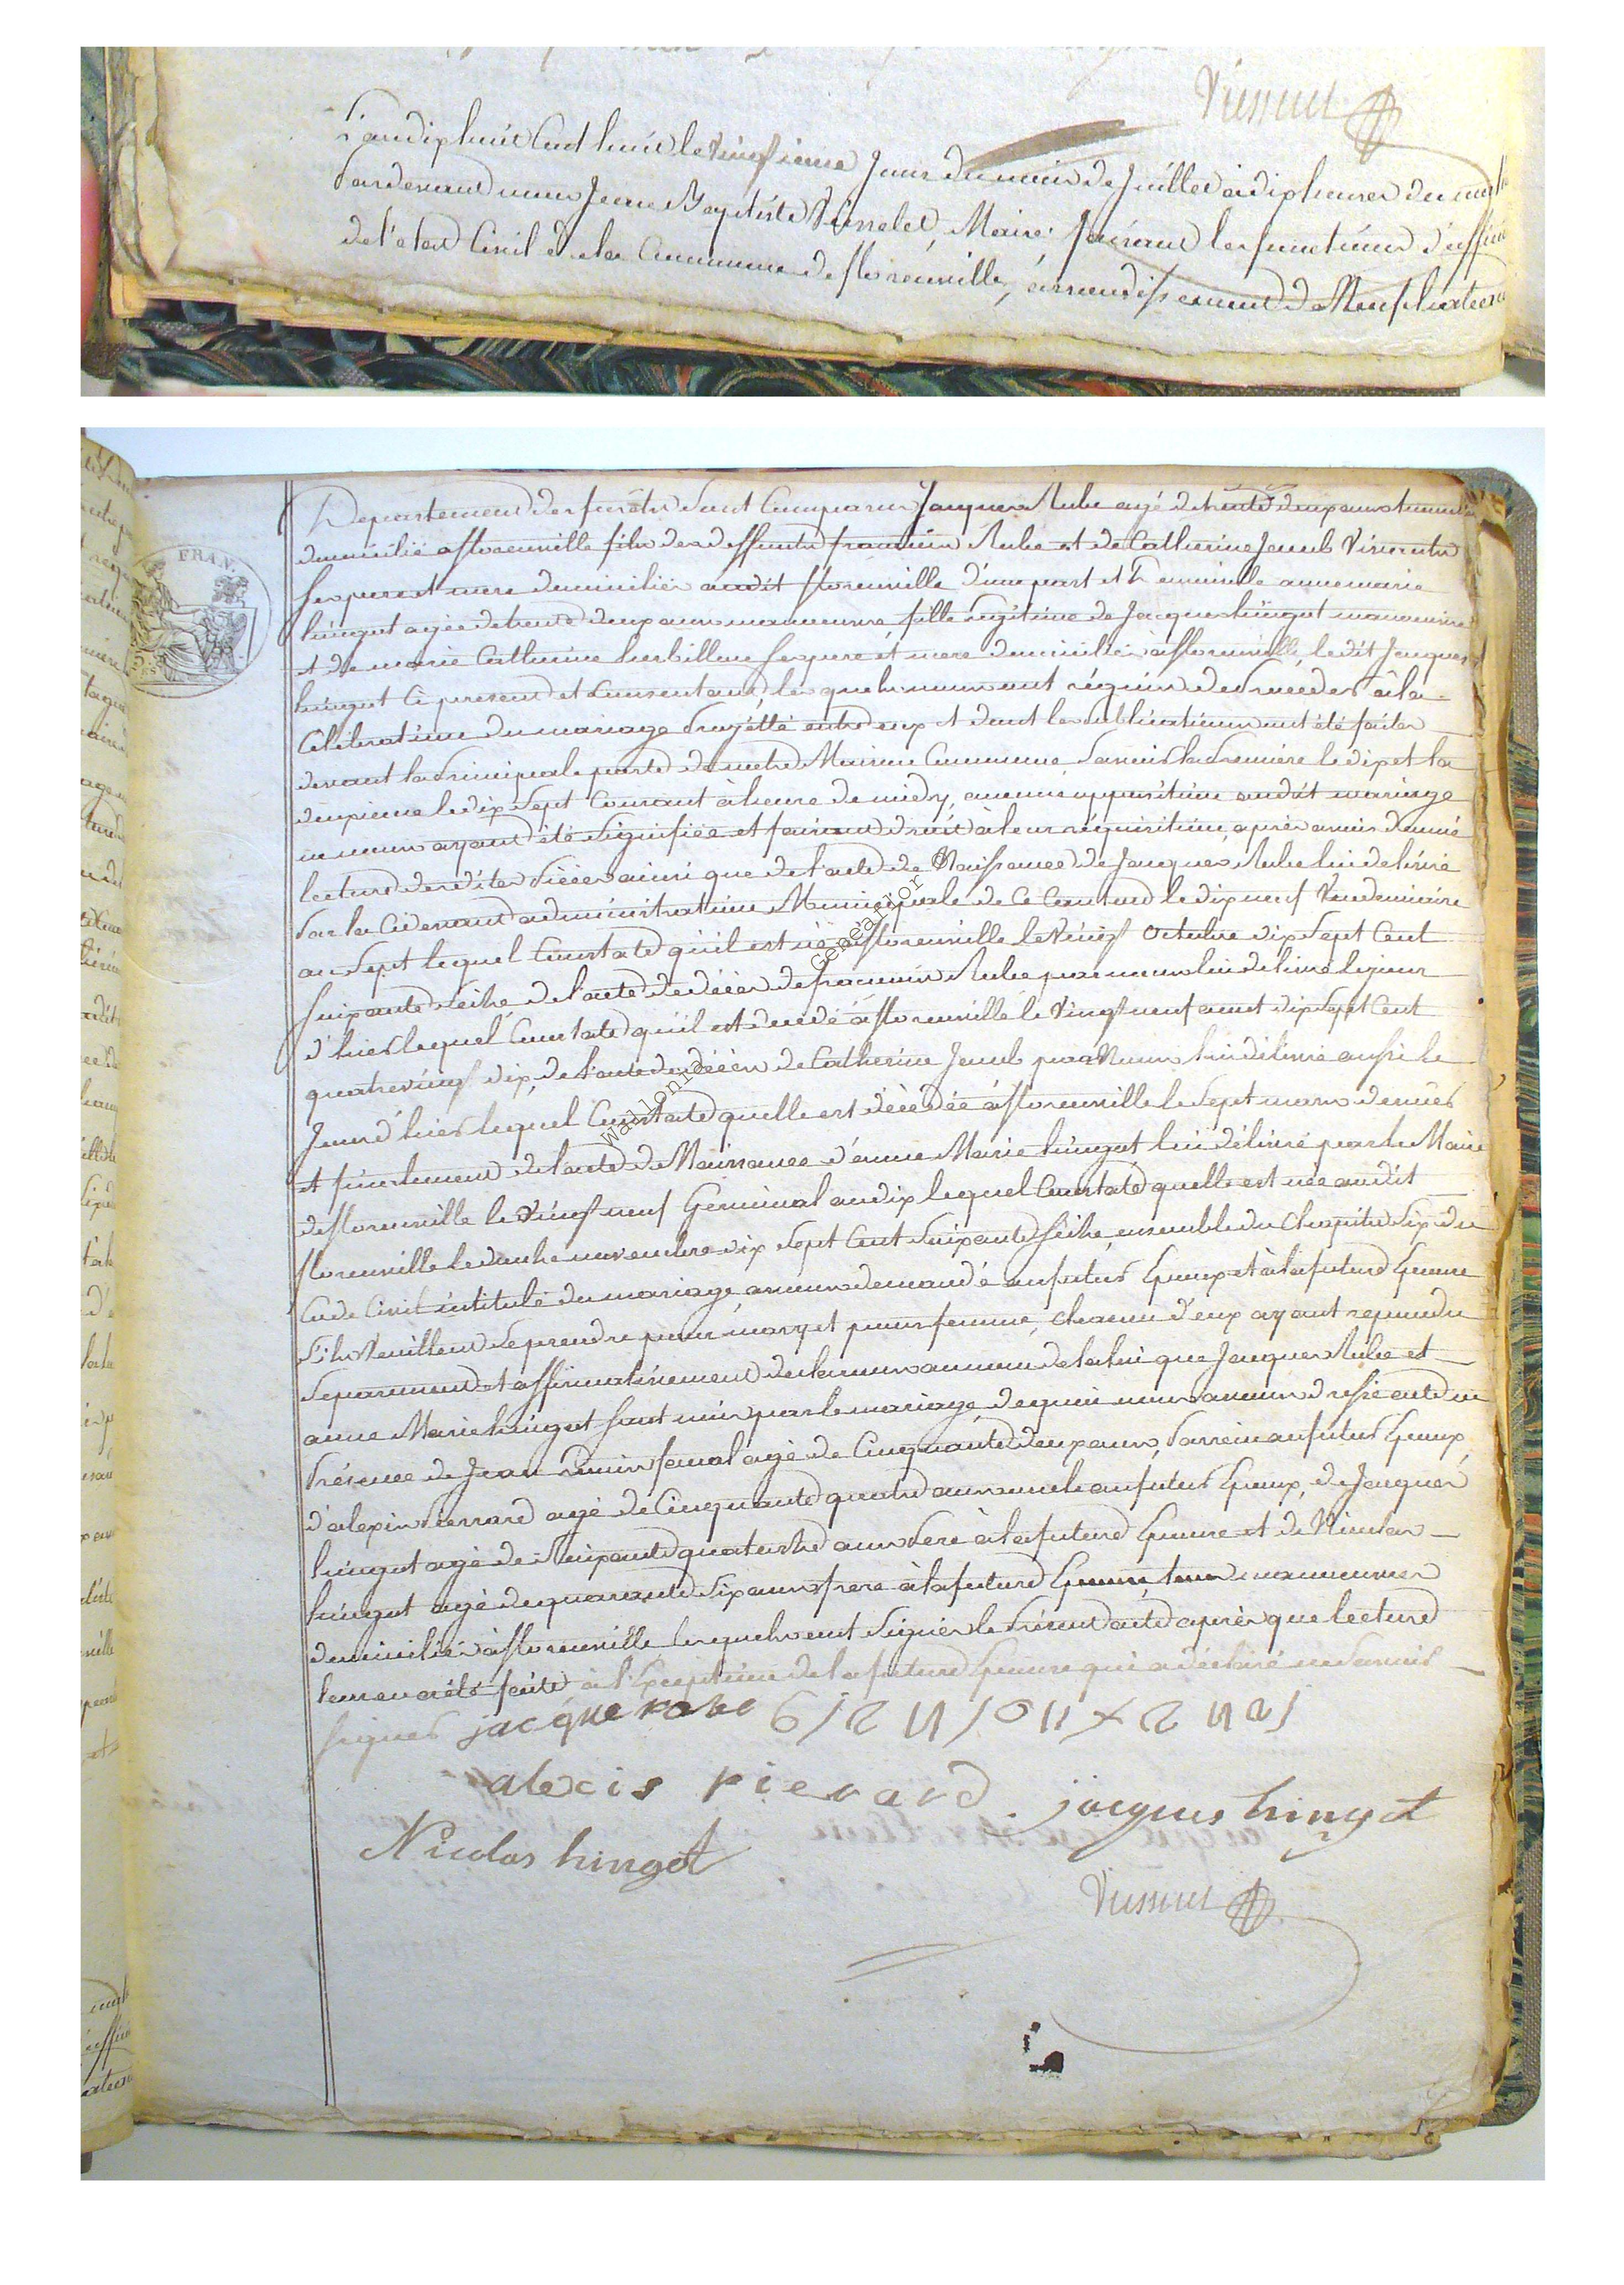 Visselet
L'an dix huit Cent huit le vingtieme Jour du mois de Juillet à dix heures du matin
Pardevant nous Jean Baptiste Visselet, Maire faisant les fonctions d'officier
de l'etat Civil de la Commune de florenville, arrondissement de Neufchateau
FRAN.
Departement des forêts sont Comparus Jacques Aube agé de trente deux ans
domicilié a florenville fils des deffunts francois Aube et de Catherine Jacob vivants
ses pere et mere domiciliés audit florenville d'une part et demoiselle anne marie
hingot agée de trente deux ans manoeuvre fille legitime de Jacques hingot manoeuvre
et de marie Catherine herbillon ses pere et mere domiciliés à florenville, le dit Jacques
hingot Ci present et Consentant, les quels nous ont réquis de Proceder à la
Célébration du mariage Projetté entre eux et dont les Publications ont été faites
devant la Principale porte de notre Maison Commune, Savoir la Premiere le dix et la
deuxieme le dix Sept Courant à heure de midy, aucune opposition audit mariage
ne nous ayant été Signifiée et faisant droit à leur réquisition, après avoir donné
lecture desdites Pièces ainsi que de l'acte de Naissance de Jacques Aube lui delivré
Par la Cidevant administration Municipale de Ce Canton le dix neuf Vendemiaire
an Sept lequel Constate qu'il est né à florenville le Vingt Octobre dix Sept Cent
Soixante Seize, de l'acte de décès de francois Aube par nous lui delivré le jour
d'hier lequel Constate qu'il est decedé à florenville le Vingt neuf aout dix Sept Cent
quatre vingt dix, de l'acte de décès de Catherine Jacob par Nous lui délivré aussi le
Jour d'hier lequel Constate quelle est décédée à florenville le Sept mars dernier
et finalement de l'acte de Naissance d'anne Marie hingot lui délivré par le Maire
de florenville le vingt neuf Germinal an dix lequel Constate quelle est née audit
florenville le douze novembre dix Sept Cent Soixante Seize, ensemble du Chapitre Six du
Code Civil intitulé du mariage, avons demandé au futur Epoux et à la future Epouse
S'ils Veuillent Se prendre pour mary et pour femme, chacun d'eux ayant repondu
Separement et affirmativement declarons au nom de la loi que Jacques Aube et
anne Marie hingot sont unis par le mariage, de quoi nous avons dressé acte en
Présence de Jean femal agé de Cinquante deux ans, Parrein au futur Epoux,
d'alexis Pierrard agé de Cinquante quatre ans oncle au futur Epoux, de Jacques
hingot agé de Soixante quatorze ans Pere à la future Epouse et de Nicolas
hingot agé de quarante Six ans frere à la future Epouse tous manoeuvres
domiciliés à florenville lesquels ont Signés le Présent acte après que lecture
leur en a été faite à l'Exception de la future Epouse qui a déclaré ne Savoir
Signer jacque robe
alexis pierard jacques hingot
Nicolas hingot
Visselet
wallonie geneanor